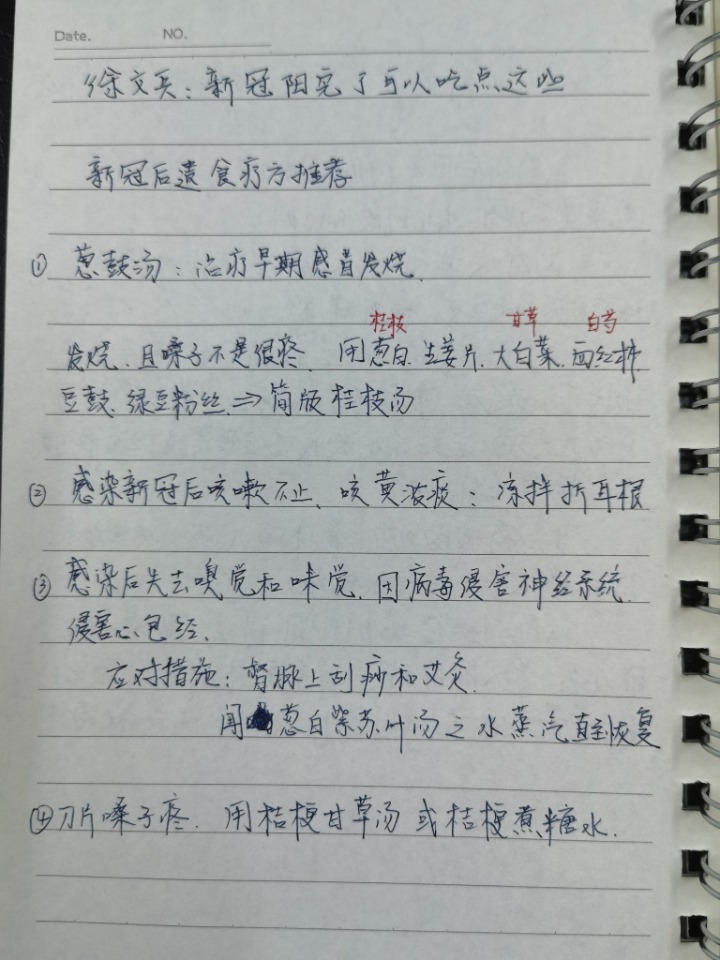 Date. NO.
徐文兵：新冠阳完了可以吃点这些
新冠后遗食疗方推荐
① 葱鼓汤：治疗早期感冒发烧.
桂枝 甘草 白芍
发烧、且嗓子不是很疼. 用葱白、生姜片、大白菜、西红柿
豆鼓、绿豆粉丝. ⇒ 简版桂枝汤
② 感染新冠后咳嗽不止、咳黄浓痰：凉拌折耳根
③ 感染后失去嗅觉和味觉. 因病毒侵害神经系统.
侵害心包经.
应对措施：督脉上刮痧和艾灸.
闻葱白紫苏叶汤之水蒸汽直到恢复
④ 刀片嗓子疼. 用桔梗甘草汤或桔梗煮糖水.